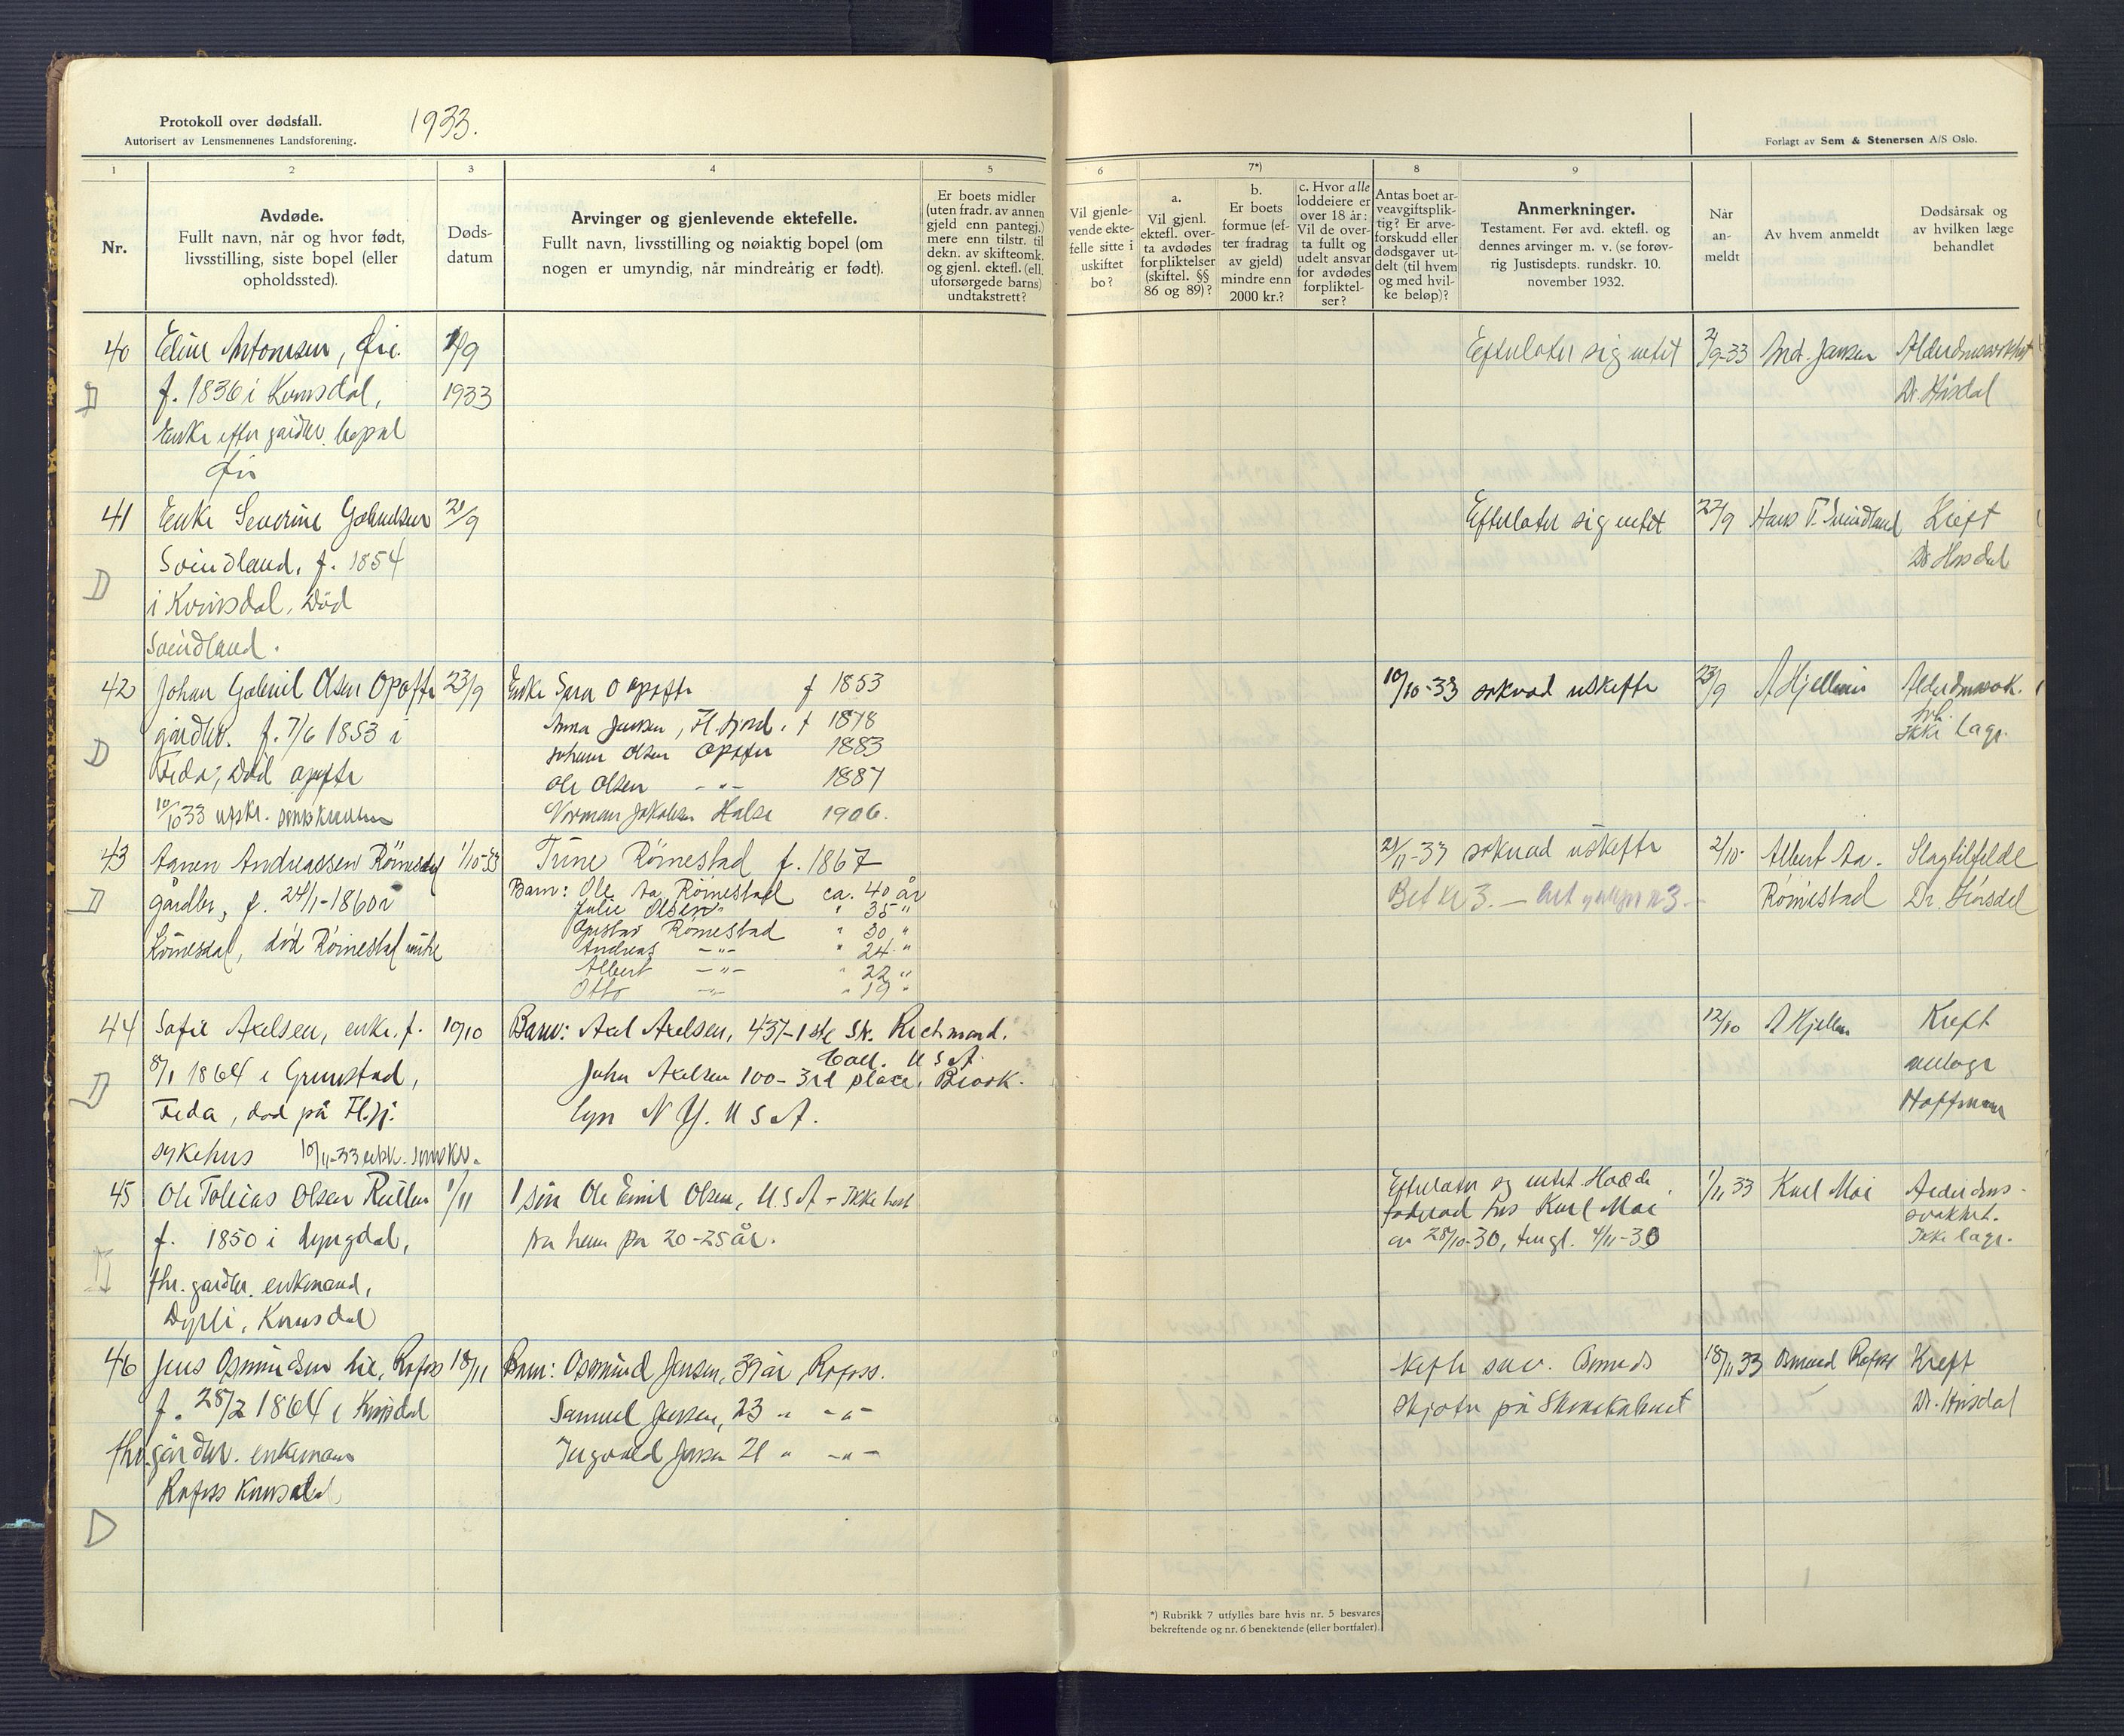 Protokoll over dødsfall.
Autorisert av Lensmennenes Landsforening.
1933.
Forlagt av Sem & Stenersen A/S Oslo.
1
2
3
4
5
6
7*)
8
9
Nr.
Avdøde.
Fullt navn, når og hvor født,
livsstilling, siste bopel (eller
opholdssted).
Døds-
datum
Arvinger og gjenlevende ektefelle.
Fullt navn, livsstilling og nøiaktig bopel (om
nogen er umyndig, når mindreårig er født).
Er boets midler
(uten fradr. av annen
gjeld enn pantegj.)
mere enn tilstr. til
dekn. av skifteomk.
og gjenl. ektef. (ell.
uforsørgede barns)
undtakstrett?
Vil gjenle-
vende ekte-
felle sitte i
uskiftet
bo?
a.
Vil gjenl.
ektefl. over-
ta avdødes
forpliktelser
(skiftel. §§
86 og 89)?
b.
Er boets
formue (ef-
ter fradrag
av gjeld)
mindre enn
2000 kr.?
c. Hvor alle
loddeiere er
over 18 år:
Vil de over-
ta fullt og
udelt ansvar
for avdødes
forpliktel-
ser?
Antas boet ar-
veavgiftsplik-
tig? Er arve-
forskudd eller
dødsgaver ut-
delt (til hvem
og med hvil-
ke beløp)?
Anmerkninger.
Testament. Før avd. ektefl. og
dennes arvinger m. v. (se forøv-
rig Justisdepts. rundskr. 10.
november 1932.
Når
an-
meldt
Av hvem anmeldt
Dødsårsak og
av hvilken læge
behandlet
40
Eline Antonsen, Øie.
/9
Efterlater sig intet
/9-33
Jansen
D
f. 1836 i Kvinsdal,
1933
Dr. Hisdal
Enke efter gårdbr. bopæl
Øie
41
Enke Severine Gabrielsen
21/9
Efterlater sig intet
22/9
Hans T. Svindland
Kreft
D
Svindland, f. 1854
Dr Hisdal
i Kvinsdal. Død
Svindland.
42
Johan Gabriel Olsen Opofte
23/9
Enke Sara O Opofte f 1853
10/10-33 søknad uskifte
23/9
A Hjellnes
Anna Jensen, Fl.fjord, f 1878
D
gårdbr. f. 7/6 1853 i
Johan Olsen Opofte 1883
Ikke læge.
Feda, Død Opofte
Ole Olsen -"- 1887
10/10 33 utskr.
Norman Jakobsen Halse 1906.
43
Aanen Andreassen Römesdal
1/10-33
Trine Römestad f. 1867
21/11-33 søknad uskifte
2/10-
Albert Aa.
Slagtilfelde
D
gårdbr, f. 24/1-1860 i
Barn: Ole Aa Römestad ca. 40 år
Bet kr 3. —
Römestad
Dr. Hisdal
Julie Olsen " 35 "
Römesdal, død Römestad
Gustav Römestad " 30 "
Andreas -"- " 24 "
Albert -"- " 22 "
Otto -"- " 19 "
44
Sofie Axelsen, enke. f.
10/10
Barn: Axel Axelsen, 437-1 ste St. Richmond.
12/10
A Hjellnes
Kreft
Call. U S A.
D
8/1 1864 i Grunstad,
John Axelsen 100-3rd place, Brook-
Feda, død på Fl.fj.
lyn N Y. U S A.
Hoffmann
sykehus 10/11-33
45
Ole Tobias Olsen
1/11
1 søn Ole Emil Olsen, U.S.A - ikke hørt
Efterlater sig intet. Hadde
1/11 33
Karl Moi
Alderdoms-
f. 1850 i Lyngdal,
fra ham på 20-25 år.
føderåd hos Karl Moi
svakhet.
av 28/10-30, tingl. 4/11-30
Ikke læge.
fhv. gårdbr. enkemand,
Dyrli, Kvinsdal
46
Jens Osmundsen Lie, Rafoss
18/11
Barn: Osmund Jensen, 39 år, Rafoss.
18/11 33
Osmund Rafoss
Kreft
f. 28/2 1864 i Kvinsdal
Samuel Jensen, 23 " -"-
Dr. Hisdal
fhv. gårdbr. enkemann
Ingvald Jensen 21 " -"-
Rafoss Kvinsdal
D
*) Rubrikk 7 utfylles bare hvis nr. 5 besvares
bekreftende og nr. 6 benektende (eller bortfaler).